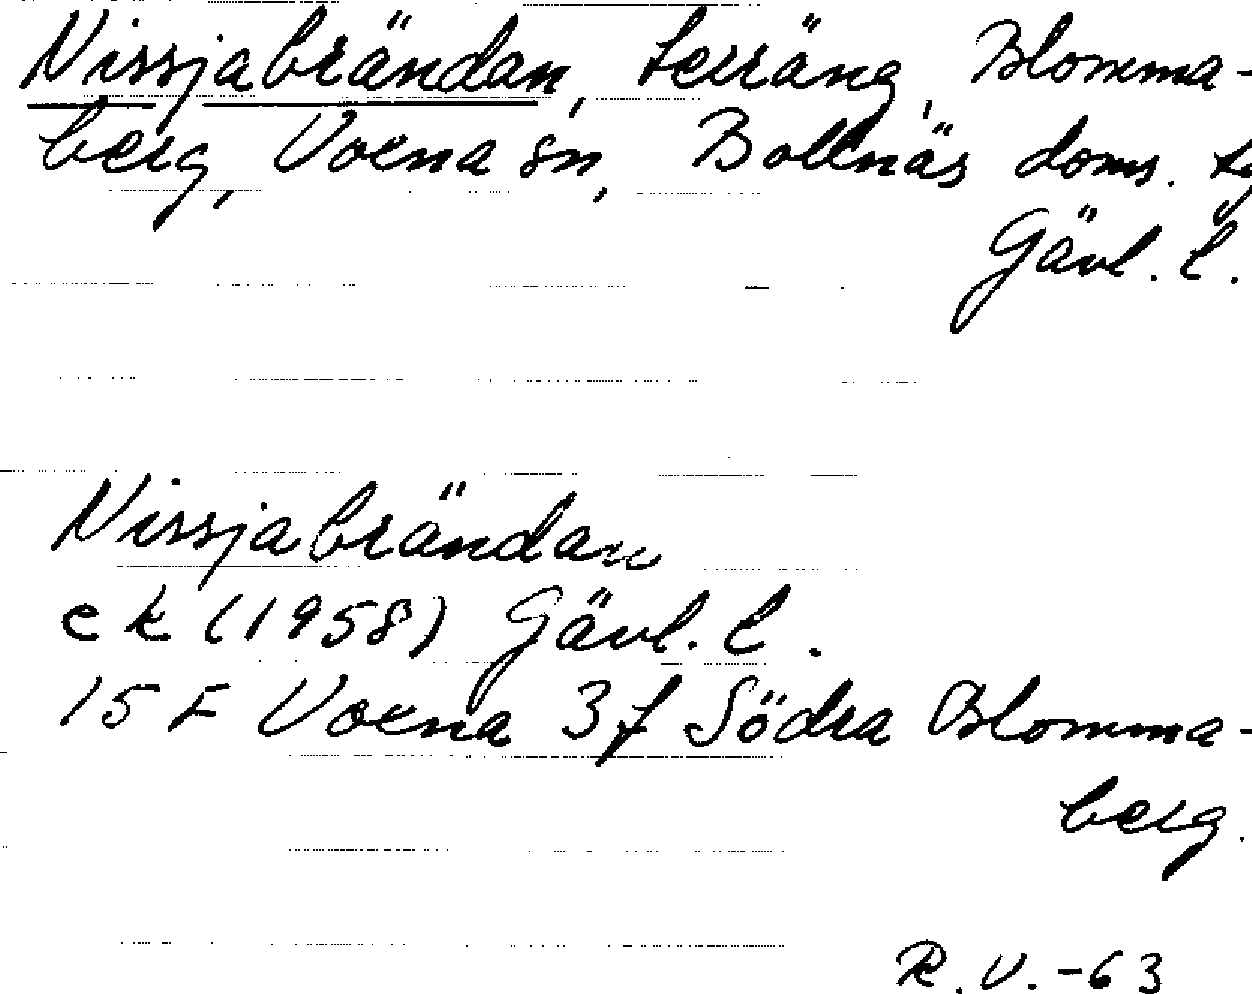 Nissjabrändan, terräng, Blomma-
berg, Voxna sn, Bollnäs doms. tg
Gävl. l.
Nissjabrändan
ek (1958) Gävl. l.
15 F Voxna 3f Södra Blomma-
berg.
R.V.-63